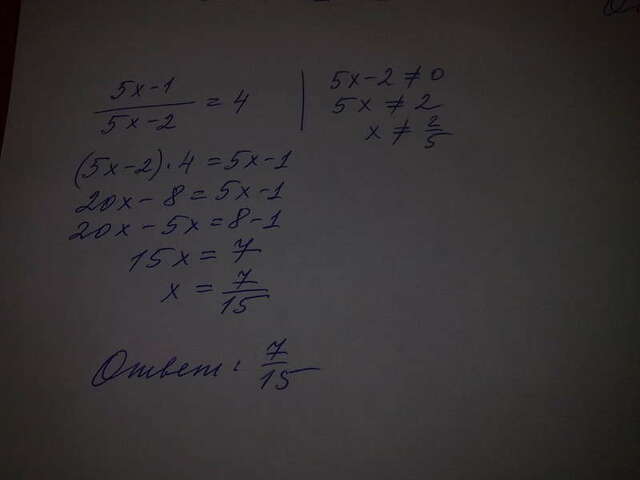 (5x-1)/(5x-2) = 4
5x-2 ≠ 0
5x ≠ 2
x ≠ 2/5
(5x-2)·4=5x-1
20x-8=5x-1
20x-5x=8-1
15x=7
x = 7/15
Ответ: 7/15